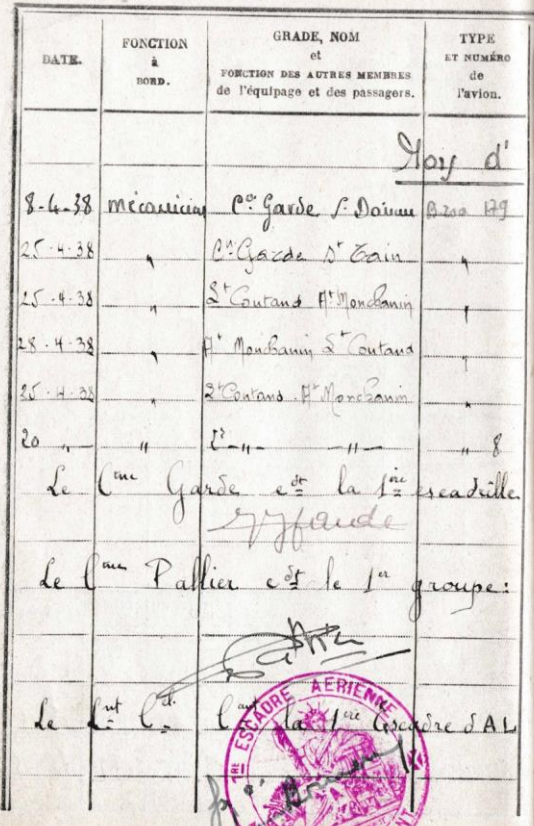 DATE.
FONCTION
à
BORD.
GRADE, NOM
et
FONCTION DES AUTRES MEMBRES
de l'équipage et des passagers.
TYPE
ET NUMÉRO
de
l'avion.
Moy d'
8-4-38 mécanicien Cne Garde B.200 179
25-4-38 " Cne Garde St "
25-4-38 " Lt Coutand At Monchanin "
28-4-38 " At Monchanin Lt Coutand "
25-4-38 " Lt Coutand At Monchanin "
20 " " " " " 8
Le Cne Garde cdt la 1ère escadrille
Garde
Le Cne Pallier cdt le 1er groupe:
Le Lnt Cel Cant la 1ère Escadre d'AL
1RE ESCADRE AÉRIENNE